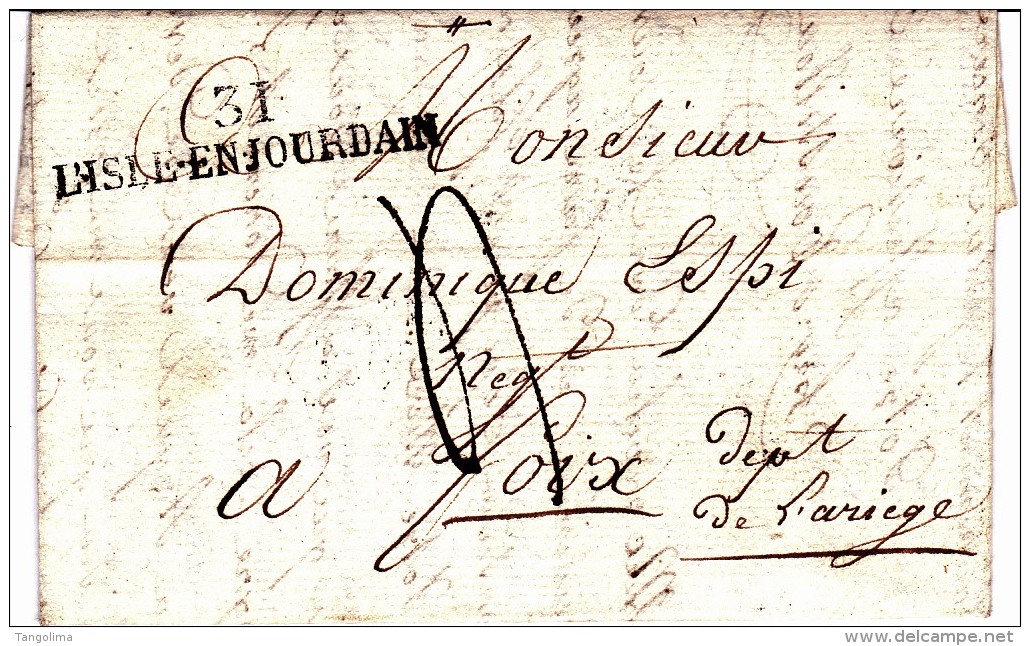 31
L'ISLE-EN-JOURDAIN
Monsieur
Dominique Espi
Negt
a foix dept
De L'ariege
Tangolima
www.delcampe.net